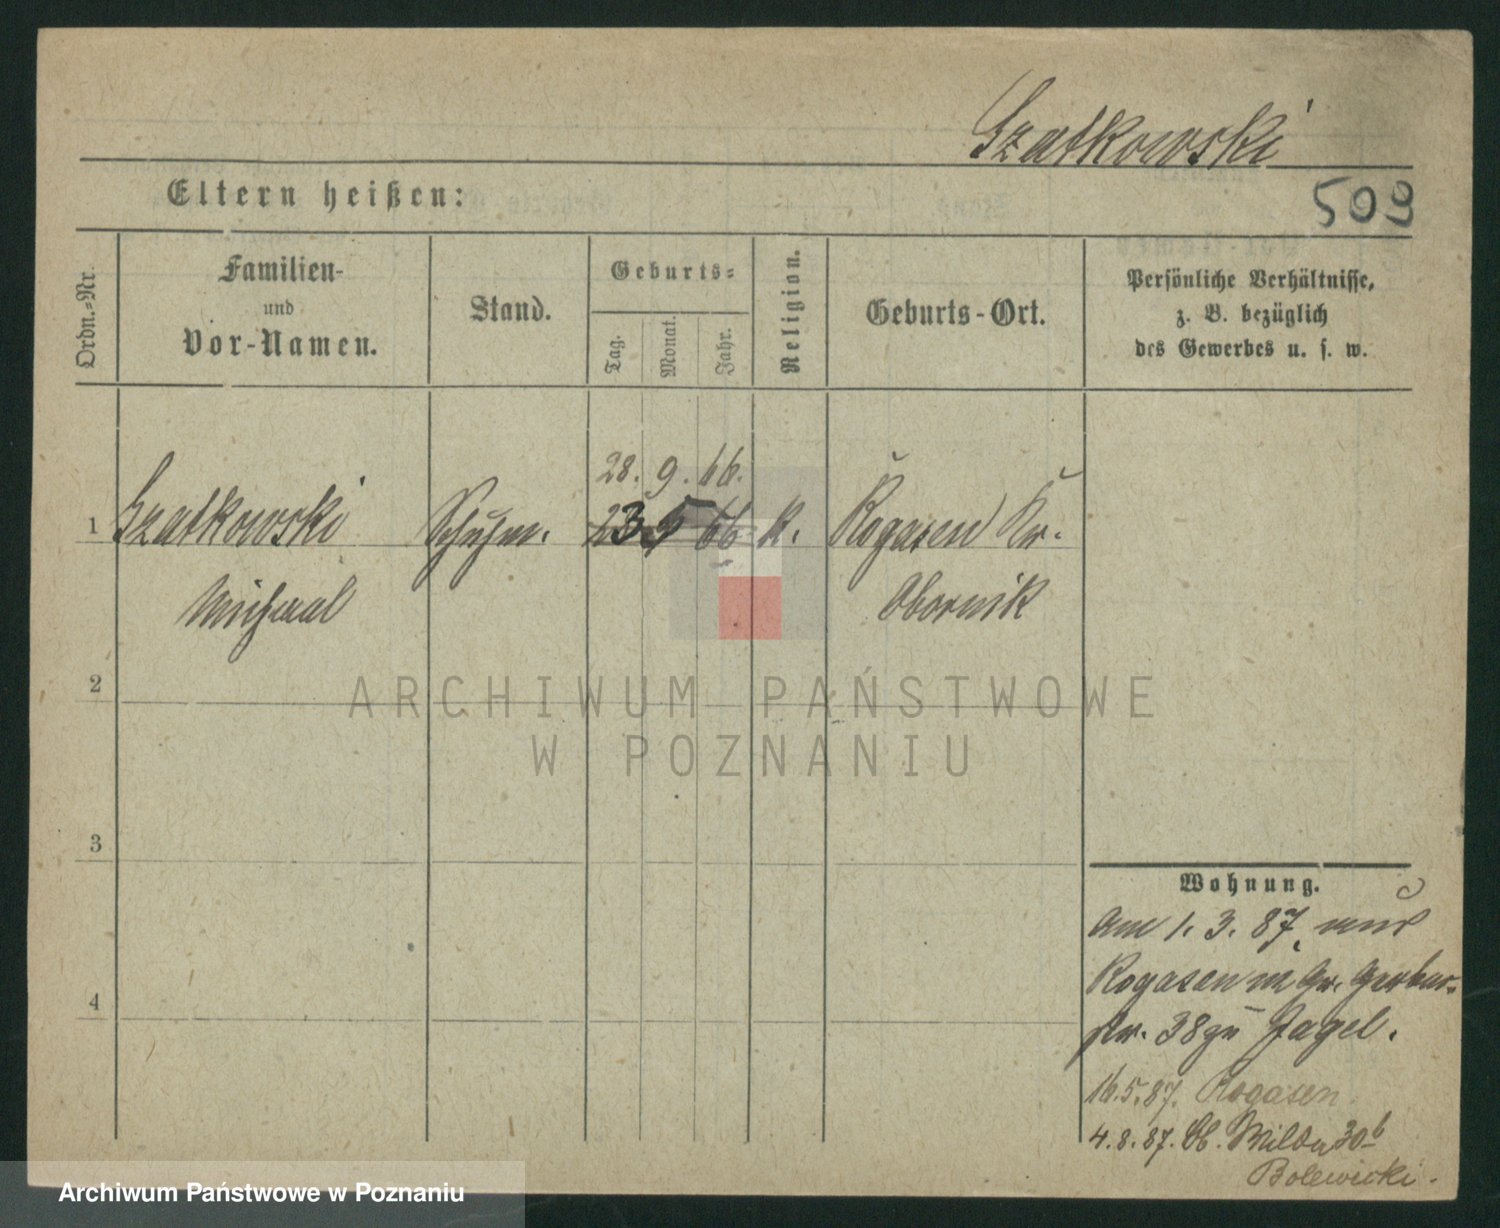 Szatkowski
Eltern heißen:
509
Ordn.-Nr.
Familien-
und
Vor-Namen.
Stand.
Geburts-
Tag.
Monat.
Jahr.
Religion.
Geburts-Ort.
Persönliche Verhältnisse,
z. B. bezüglich
des Gewerbes u. s. w.
28. 9. 66.
1 Szatkowski Schuhm. 23 5 66 k. Rogasen Kr.
Michael Obornik
2
3
4
Wohnung.
Am 1. 3. 87, aus
Rogasen in Gr. Gerber-
str. 38 zu Jagel.
16.5.87. Rogasen
4.8.87. Ob. Wilda 30b
Bolewicki.
ARCHIWUM PAŃSTWOWE
W POZNANIU
Archiwum Państwowe w Poznaniu